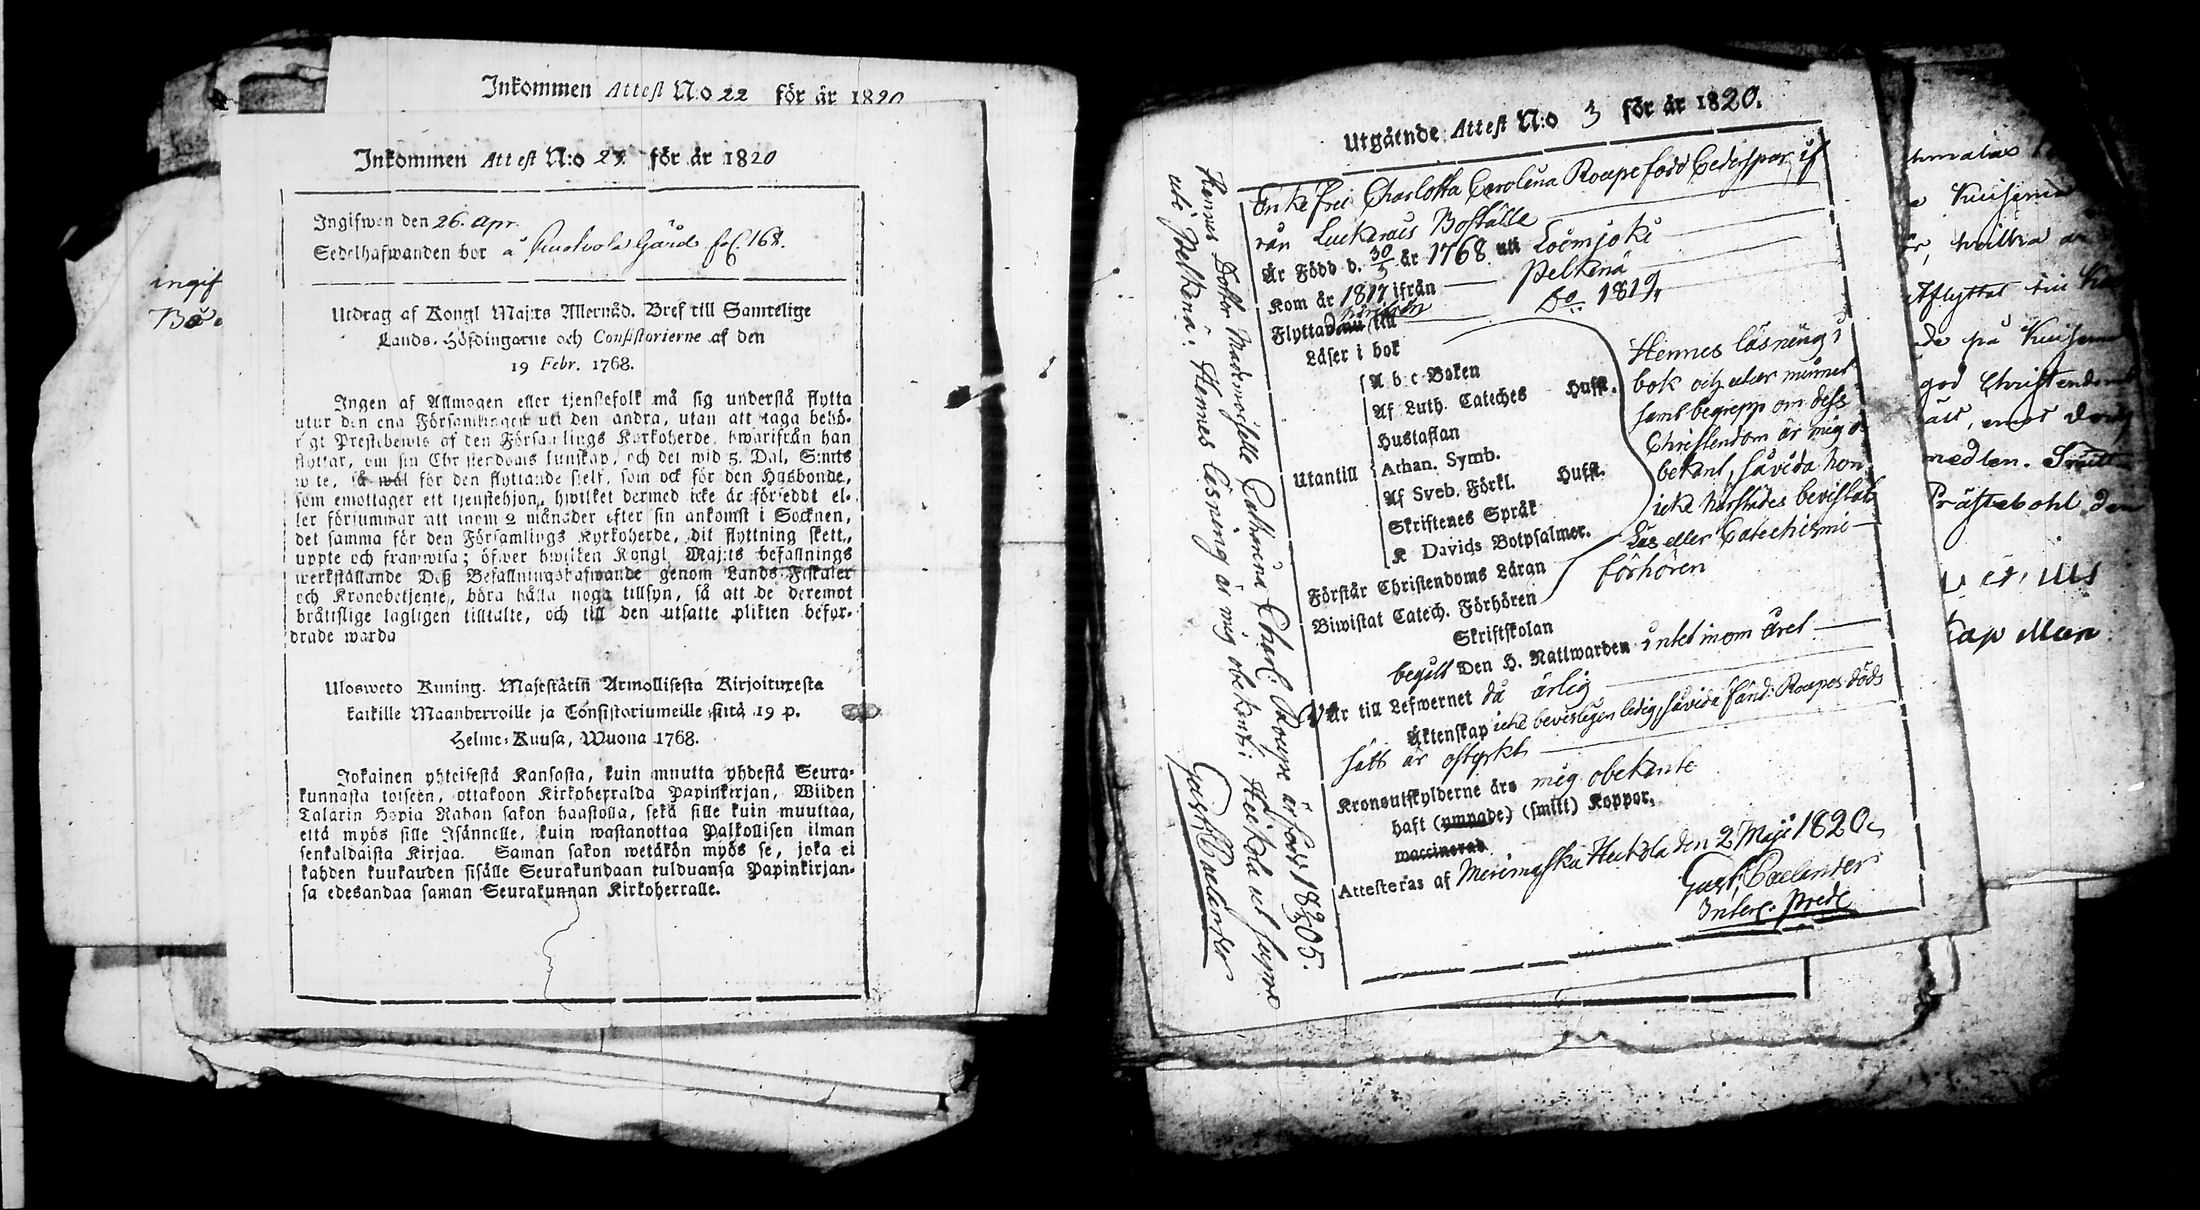 Inkommen Attest N:o 22 för år 1820
Inkommen Attest N:o 23 för år 1820
Ingifwen den 26. Apr.
Sedelhafwanden bor å Gård fol. 168.
Utdrag af Kongl Maj:ts Allernåd. Bref till Samtelige
Lands-Höfdingarne och Consistorierne af den
19 Febr. 1768.
Ingen af Allmogen eller tjenstefolk må sig understå flytta
utur den ena Församlingen uti den andra, utan att taga behö-
rigt Prestebewis af den Församlings Kyrkoherde, hwarifrån han
flyttar, om sin Christendoms kunskap, och det wid 5. Dal. S:mts
wite, så wäl för den flyttande sielf, som ock för den Husbonde,
som emottager ett tjenstehjon, hwilket dermed icke är försedt el-
ler försummar att inom 2 månader efter sin ankomst i Socknen,
det samma för den Församlings Kyrkoherde, dit flyttning skett,
uppte och framwisa; öfwer hwilken Kongl Maj:ts befallnings
werkställande Deß Befallningshafwande genom Lands-Fiskaler
och Kronobetjente, böra hålla noga tillsyn, så att de deremot
bråttslige lagligen tilltalte, och till den utsatte plikten befor-
drade warda
Ulosweto Kuning. Majestätin Armollisesta Kirjoituxesta
kaikille Maanherroille ja Consistoriumeille siitä 19 p.
Helme-Kuusa, Wuona 1768.
Jokainen yhteisestä Kansasta, kuin muutta yhdestä Seura-
kunnasta toiseen, ottakoon Kirkoherralda Papinkirjan, Wiiden
Talarin Hopia Rahan sakon haastolla, sekä sille kuin muuttaa,
että myös sille Isännelle, kuin wastanottaa Palkollisen ilman
senkaldaista Kirjaa. Saman sakon wetäkön myös se, joka ei
kahden kuukauden sisälle Seurakundaan tulduansa Papinkirjan-
sa edesandaa saman Seurakunnan Kirkoherralle.
ingif
Utgående Attest N:o 3 för år 1820.
Enkefru Charlotta Carolina Roupe född Cederspar, if
rån Boställe
Är Född d. 30/3 år 1768 uti Loimjoki
Kom år 1817 ifrån Pelkenä
Flyttade till Do 1819,
Läser i bok
A b c-Boken
Af Luth. Cateches Hufft.
Hustaflan
Utantill
Athan. Symb.
Af Sveb. Förkl. Hufft.
Skriftenes Språk
K Davids Botpsalmer.
Förstår Christendoms Läran
Biwistat Catech. Förhören
Skriftskolan
Hennes läsning i
bok och utur minnet
samt begrepp om dess
Christendom är mig o
bekant, såvida hon
icke härstädes bevistat
Läs eller Catechismi-
förhören
begått Den H. Nattwarden intet inom året
Är till Lefwernet då ärlig
Äktenskap icke bevisligen ledig, såvida Fänd: Roupes döds
sätt är ostyrkt
Kronoutskylderne äro mig obekante
haft (ympade) (smitt) Koppor,
waccinerad
Attesteras af Merimasku Heikola den 2 Maji 1820
Gust. Caelander
Interc: Pred:
Hennes Dotter Mademoiselle Cathrina Charl: Roupe är född 1805.
uti Pelkenä: Hennes läsning är mig obekant: Heikola ut supra
Gust. Caelander
Aflyttat till
god Christendoms
Prästebohl den